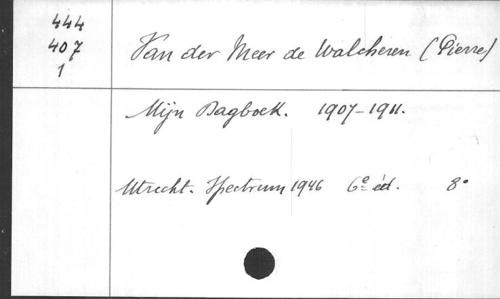 444
407
1
Van der Meer de Walcheren (Pierre)
Mijn Dagboek. 1907-1911.
Utrecht. Spectrum 1946 6e éd. 8°